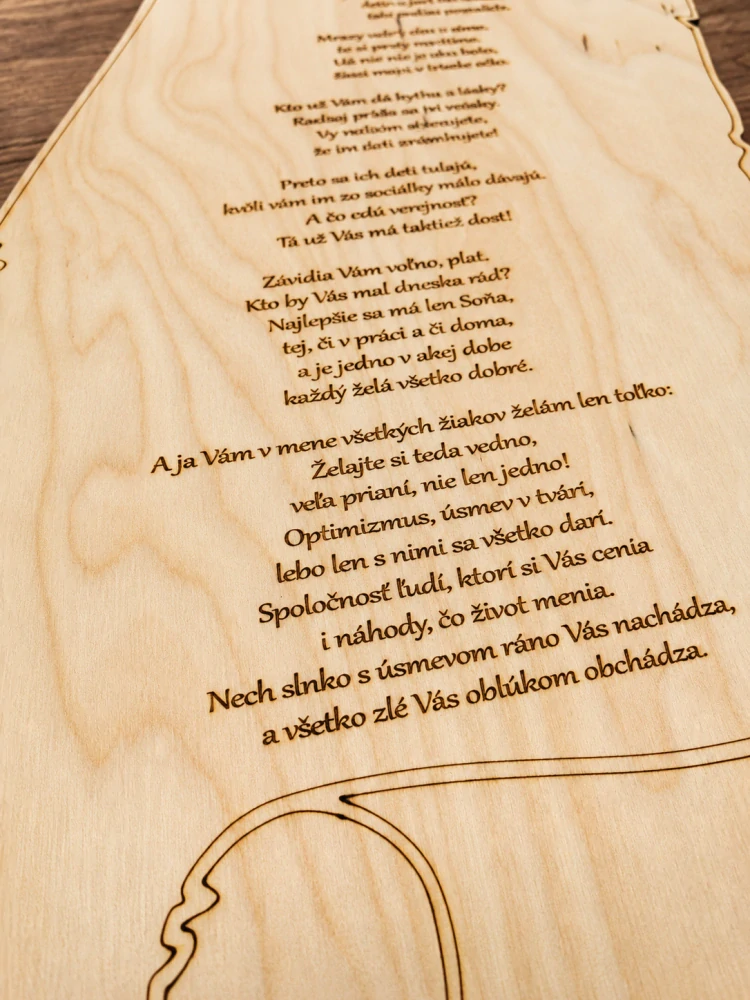 Kto už Vám dá kythu a lásky?
Radšej príďa sa
Vy
že im dati
Preto sa ich deti tulajú,
kvôli vám im zo sociálky málo dávajú.
A čo edú verejnosť?
Tá už Vás má taktiež dosť!
Závidia Vám voľno, plat.
Kto by Vás mal dneska rád?
Najlepšie sa má len Soňa,
tej, či v práci a či doma,
a je jedno v akej dobe
každý želá všetko dobré.
A ja Vám v mene všetkých žiakov želám len toľko:
Želajte si teda vedno,
veľa prianí, nie len jedno!
Optimizmus, úsmev v tvári,
lebo len s nimi sa všetko darí.
Spoločnosť ľudí, ktorí si Vás cenia
i náhody, čo život menia.
Nech slnko s úsmevom ráno Vás nachádza,
a všetko zlé Vás oblúkom obchádza.